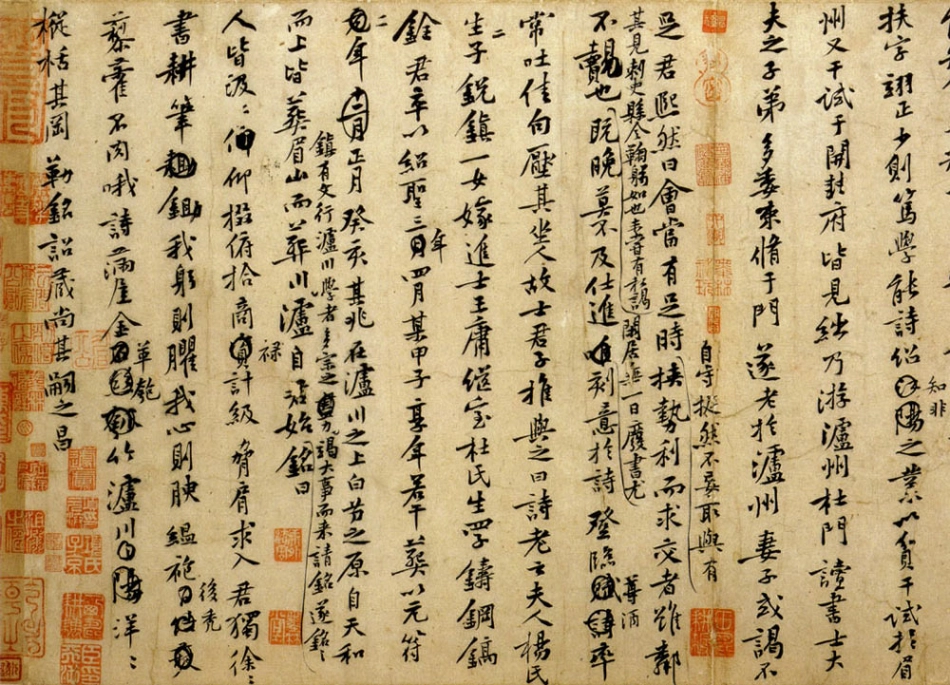 扶字翊正少則篤學能詩紹知非之業以貢干試於眉
州又干試于開封府皆見絀乃游瀘州杜門讀書士大
夫之子弟多委束脩于門遂老於瀘州妻子或謁不
自守挺然不妄取與有
足君熙然曰會當有足時挾勢利而求交者雖鄰
其見刺史縣令翰躬如也未嘗有私謁閑居無一日廢書尤
不覿也既晚莫不及仕進唯刻意於詩登臨樽酒率
常吐佳句壓其坐人故士君子推與之曰詩老云夫人楊氏
生二子銳鎮一女嫁進士王庸繼室杜氏生四子鑄鋼鎬
銓君卒以紹聖三年四月某甲子享年若干葬以元符
二年正月癸亥其兆在瀘川之上白芀之原自天和
鎮有文行瀘川學者多宗之竭大事而來請銘遂銘之
而上皆葬眉山而葬川瀘自始銘曰
人皆汲汲仰掇俯拾商祿計級脅肩求入君獨徐徐
書耕筆耡我躬則臞我心則腴縕袍後禿
藜藿不肉哦詩滿屋金革匏竹瀘川洋洋
樅栝其岡勒銘詔藏尚其嗣之昌